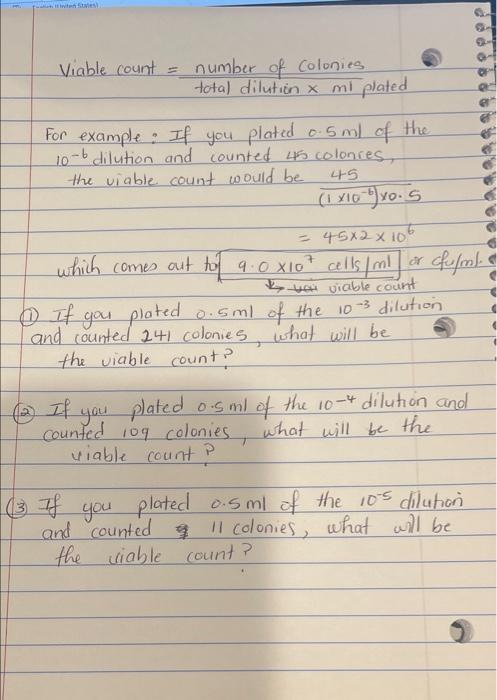 (United States)
Viable count = number of Colonies
total dilution x ml plated
For example : If you plated 0.5ml of the
10-6 dilution and counted 45 colonies,
the viable count would be 45
(1 x10-6) x0.5
= 45x2 x 10^6
which comes out to 9.0 x10^7 cells/ml or cfu/ml.
↳ viable count
① If you plated 0.5ml of the 10-3 dilution
and counted 241 colonies, what will be
the viable count?
② If you plated 0.5ml of the 10-4 dilution and
counted 109 colonies, what will be the
viable count?
③ If you plated 0.5ml of the 10-5 dilution
and counted 11 colonies, what will be
the viable count?